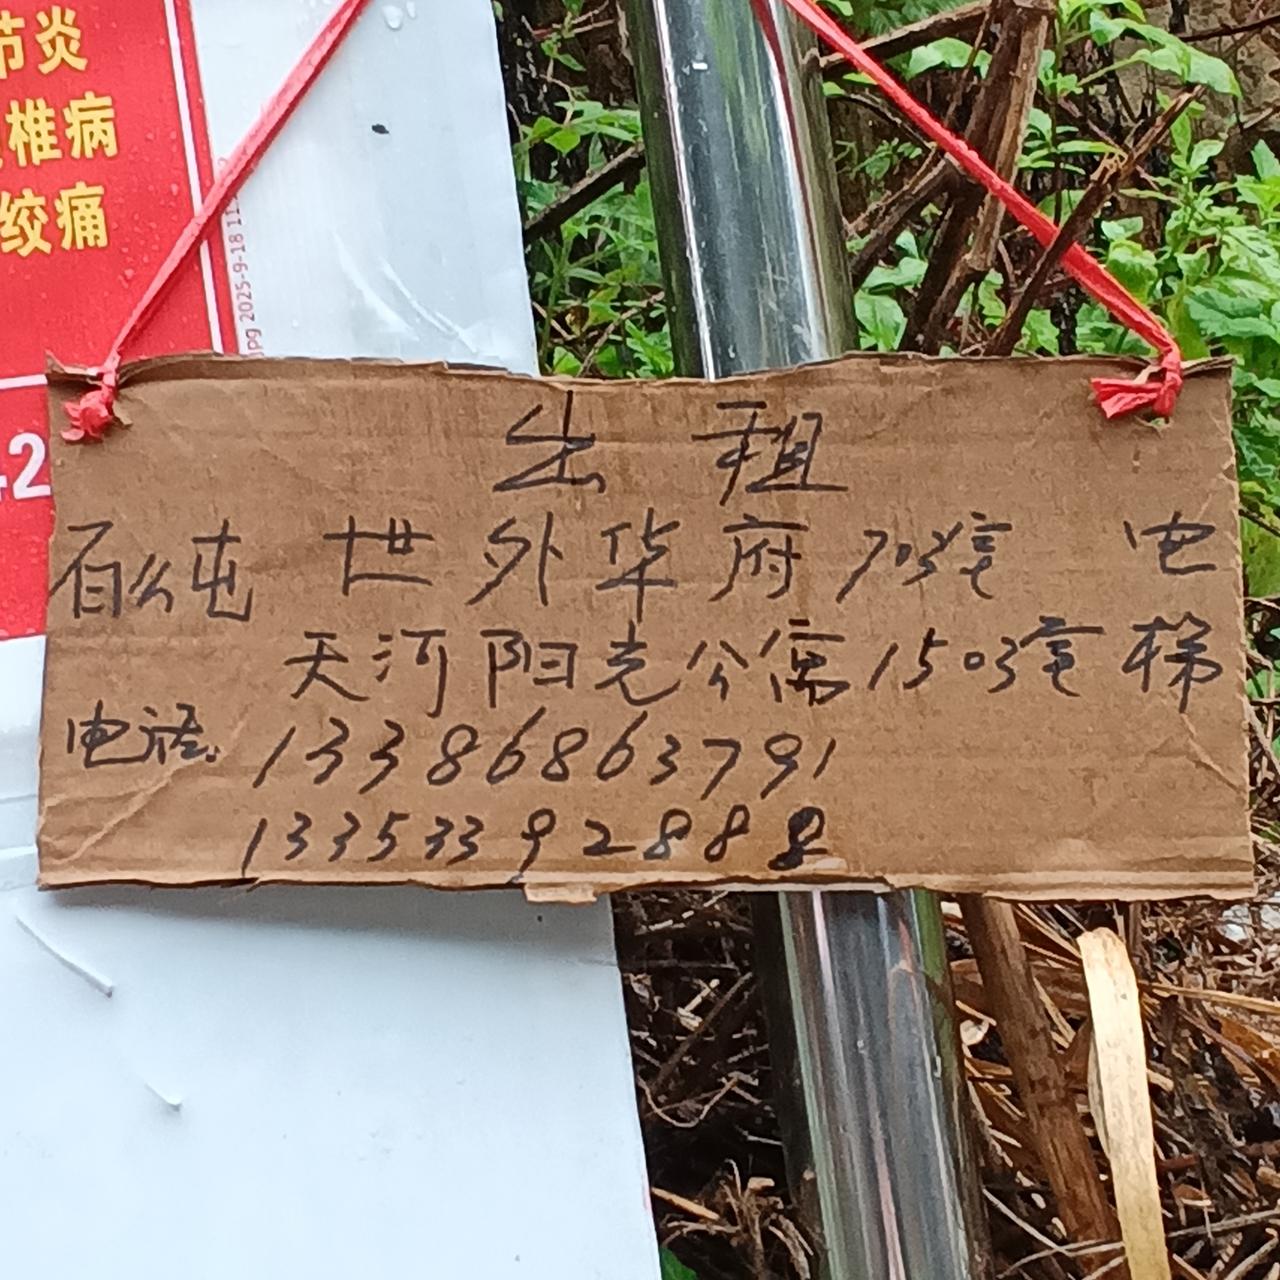 节炎
椎病
绞痛
jpg 2025-9-18 11
42
出租
百么屯 世外华府703室 电
天河阳光公寓1503室 梯
电话: 13386863791
13353392888